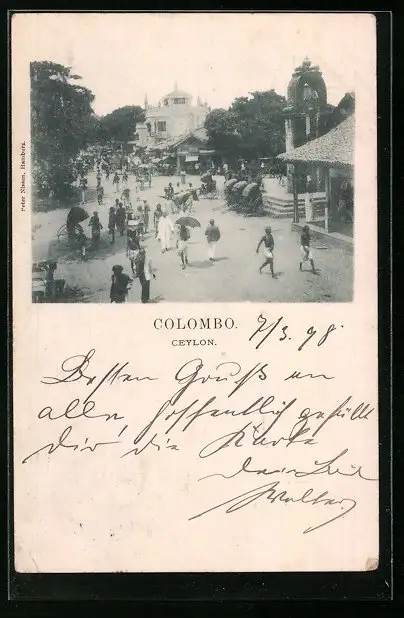 Peter Nissen, Hamburg.
COLOMBO.
CEYLON.
7/3. 98.
Besten Gruß an
alle, hoffentlich gefällt
Dir die Karte
Dein
Walter